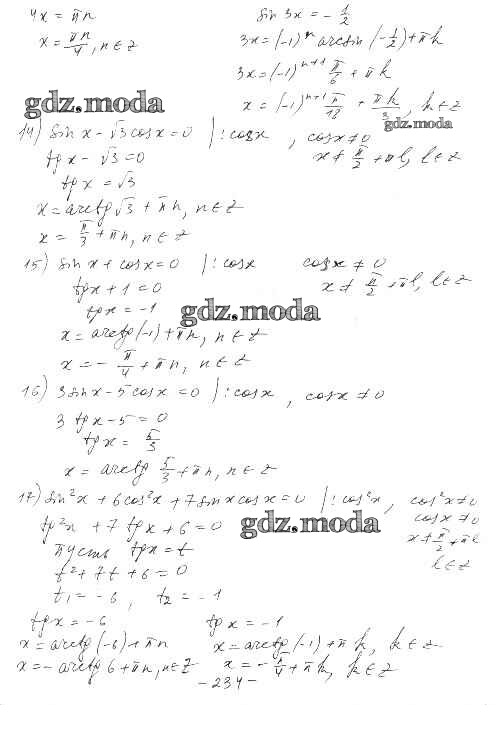 4x = πn
x = πn/4, n∈z
sin 3x = -1/2
3x = (-1)^n arcsin (-1/2) + πk
3x = (-1)^(n+1) π/6 + πk
x = (-1)^(n+1) π/18 + πk/3, k∈z
gdz.moda
gdz.moda
14) sin x - √3 cos x = 0 | : cos x , cos x ≠ 0
tg x - √3 = 0 x ≠ π/2 + πl, l∈z
tg x = √3
x = arctg √3 + πn, n∈z
x = π/3 + πn, n∈z
15) sin x + cos x = 0 | : cos x cos x ≠ 0
tg x + 1 = 0 x ≠ π/2 + πl, l∈z
tg x = -1
gdz.moda
x = arctg (-1) + πn, n∈z
x = - π/4 + πn, n∈z
16) 3 sin x - 5 cos x = 0 | : cos x , cos x ≠ 0
3 tg x - 5 = 0
tg x = 5/3
x = arctg 5/3 + πn, n∈z
17) sin²x + 6cos²x + 7 sin x cos x = 0 | : cos²x , cos²x ≠ 0
tg²x + 7 tg x + 6 = 0 cos x ≠ 0
gdz.moda
пусть tg x = t x ≠ π/2 + πk
t² + 7t + 6 = 0 k∈z
t₁ = -6 , t₂ = -1
tg x = -6 tg x = -1
x = arctg (-6) + πn x = arctg (-1) + πk, k∈z
x = - arctg 6 + πn, n∈z x = - π/4 + πk, k∈z
- 234 -